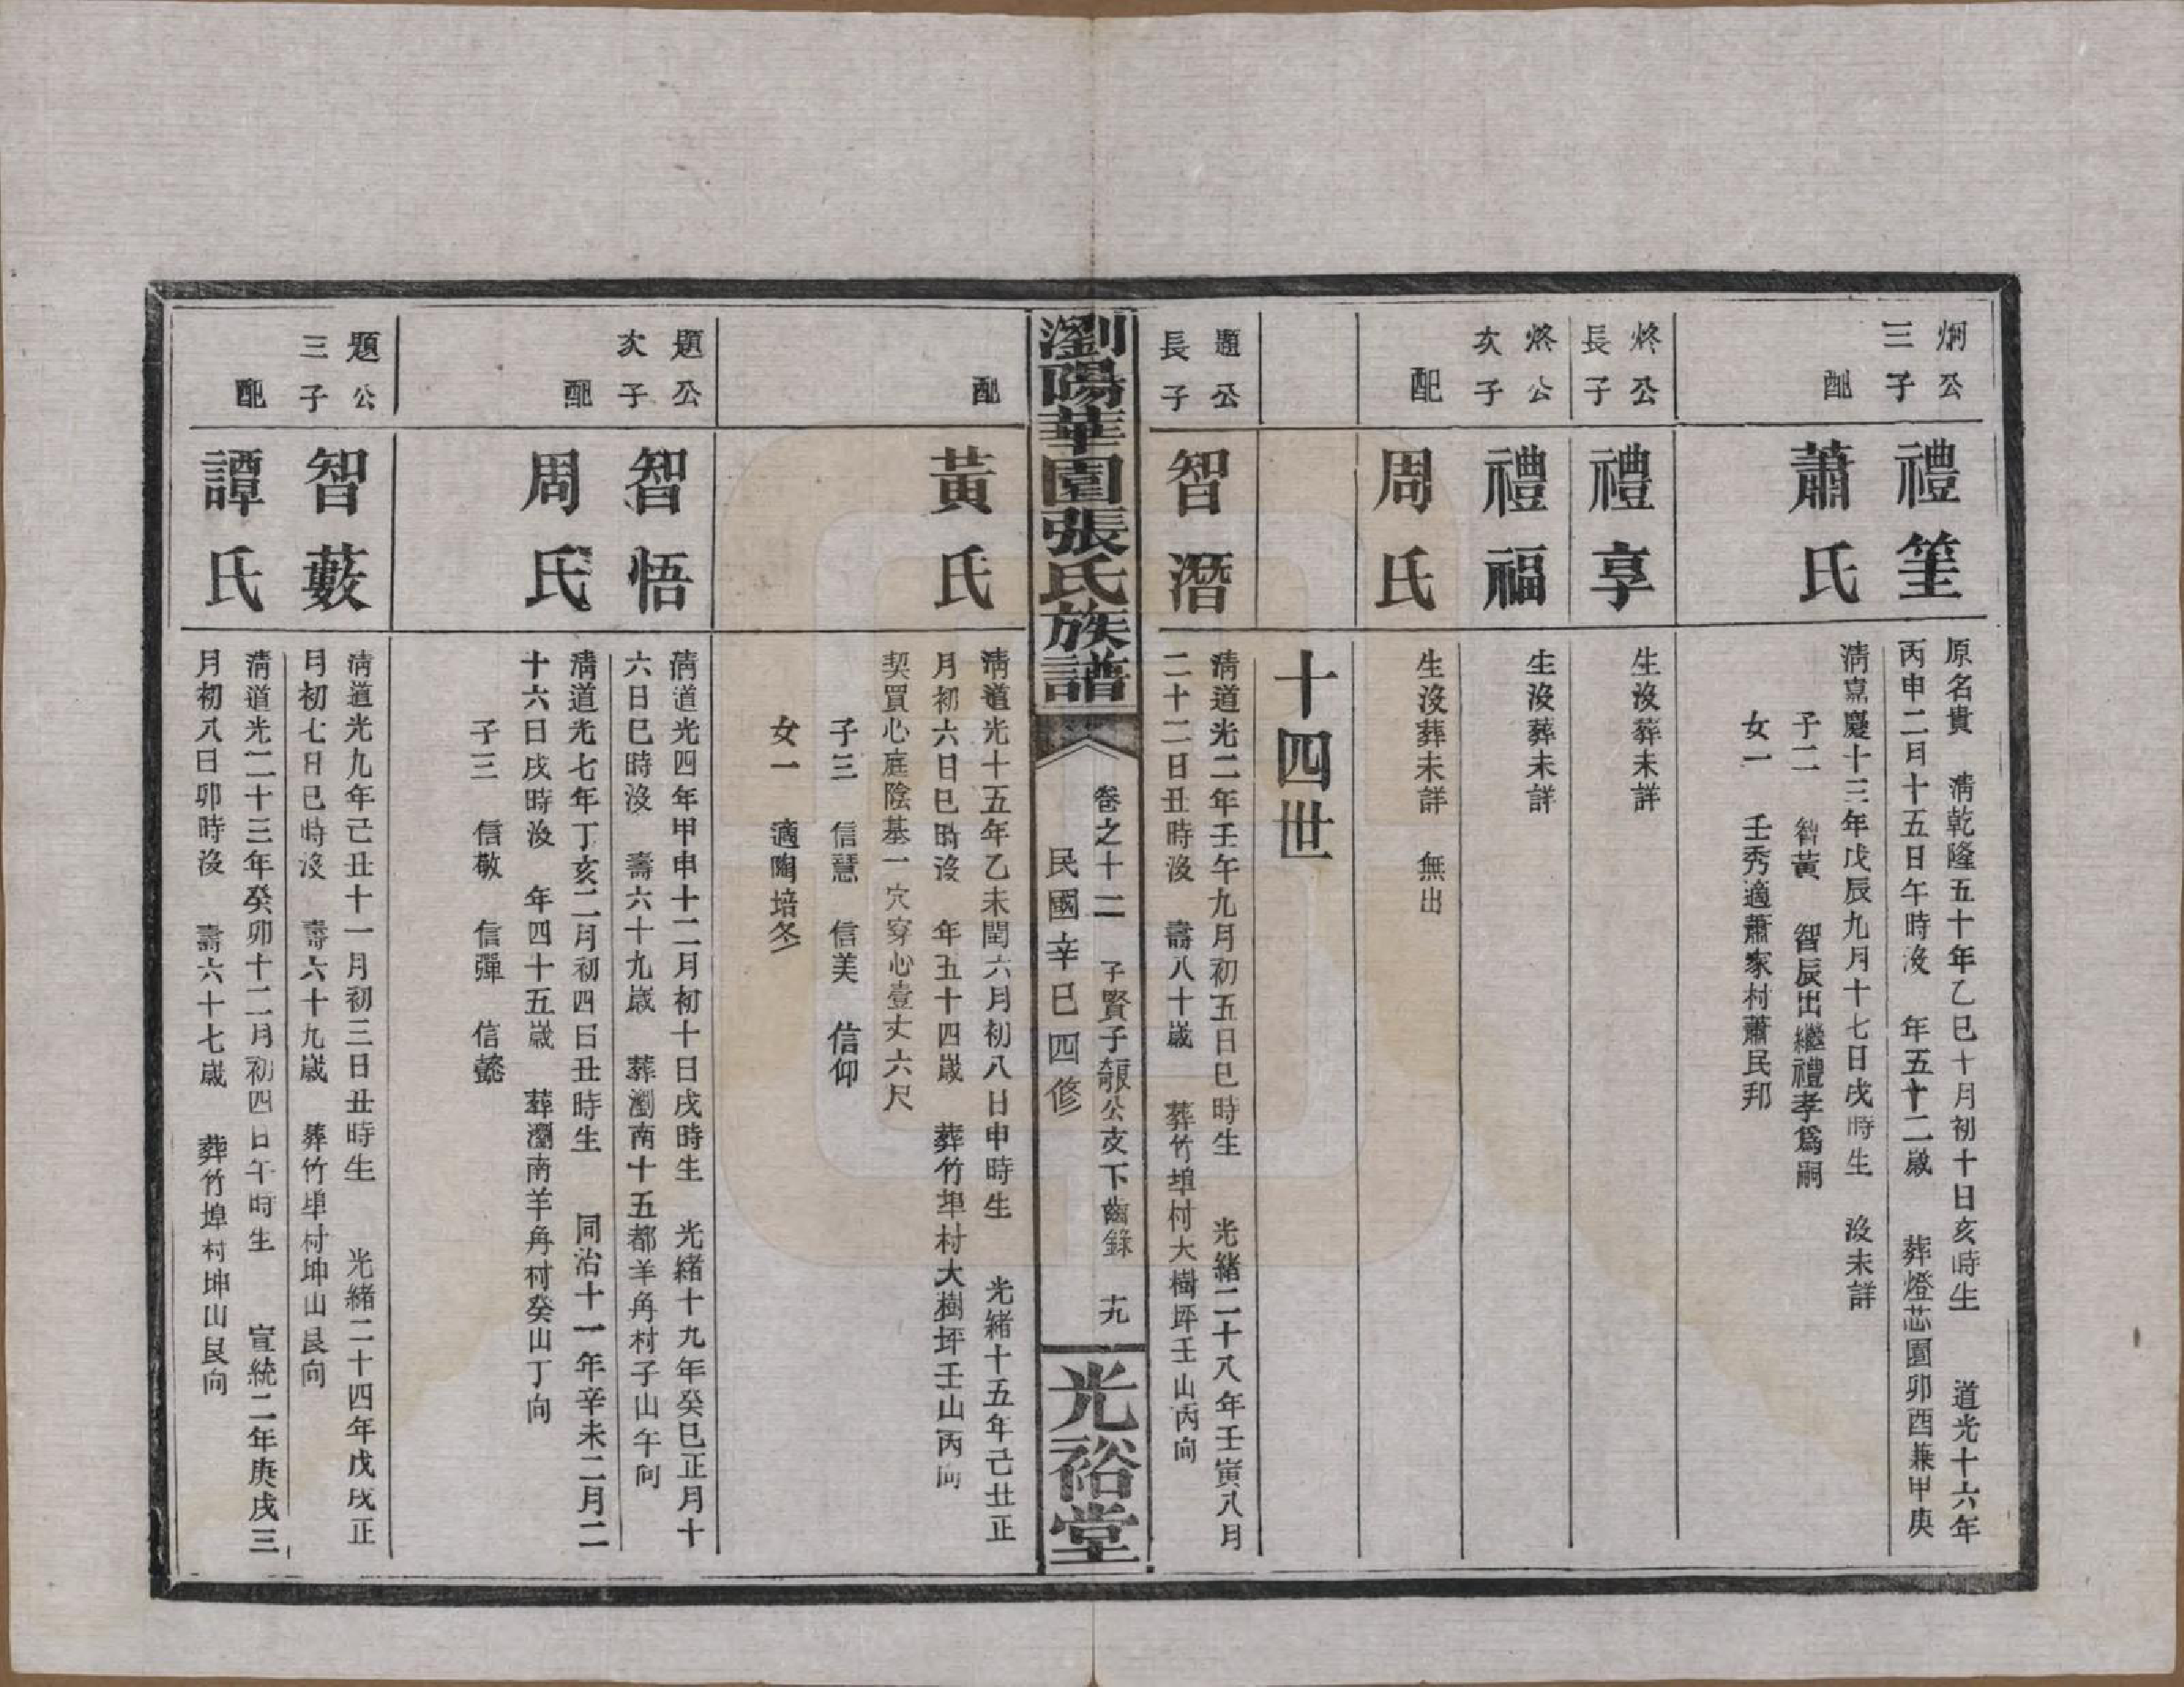 炯公三子
禮筀
原名貴　清乾隆五十年乙巳十月初十日亥時生　道光十六年
丙申二月十五日午時沒　年五十二歲　葬燈芯園卯酉兼甲庚
配
蕭氏
清嘉慶十三年戊辰九月十七日戌時生　沒未詳
子二　智黃　智辰出繼禮孝爲嗣
女一　壬秀適蕭家村蕭民邦
炵公長子
禮享
生沒葬未詳
炵公次子
禮福
生沒葬未詳
配
周氏
生沒葬未詳　無出
十四世
題公長子
智潛
清道光二年壬午九月初五日巳時生　光緒二十八年壬寅八月
二十二日丑時沒　壽八十歲　葬竹埠村大樹坪壬山丙向
瀏陽華園張氏族譜
卷之十二　子賢子報公支下齒錄　十九
民國辛巳四修
光裕堂
配
黃氏
清道光十五年乙未閏六月初八日申時生　光緒十五年己丑正
月初六日巳時沒　年五十四歲　葬竹埠村大樹坪壬山丙向
契買心庭陰基一穴穿心壹丈六尺
子三　信慧　信美　信仰
女一　適陶培冬
題公次子
智悟
清道光四年甲申十二月初十日戌時生　光緒十九年癸巳正月十
六日巳時沒　壽六十九歲　葬瀏南十五都羊角村子山午向
配
周氏
清道光七年丁亥二月初四日丑時生　同治十一年辛未二月二
十六日戌時沒　年四十五歲　葬瀏南羊角村癸山丁向
子三　信敬　信彈　信懿
題公三子
智藪
清道光九年己丑十一月初三日丑時生　光緒二十四年戊戌正
月初七日巳時沒　壽六十九歲　葬竹埠村坤山艮向
配
譚氏
清道光二十三年癸卯十二月初四日午時生　宣統二年庚戌三
月初八日卯時沒　壽六十七歲　葬竹埠村坤山艮向